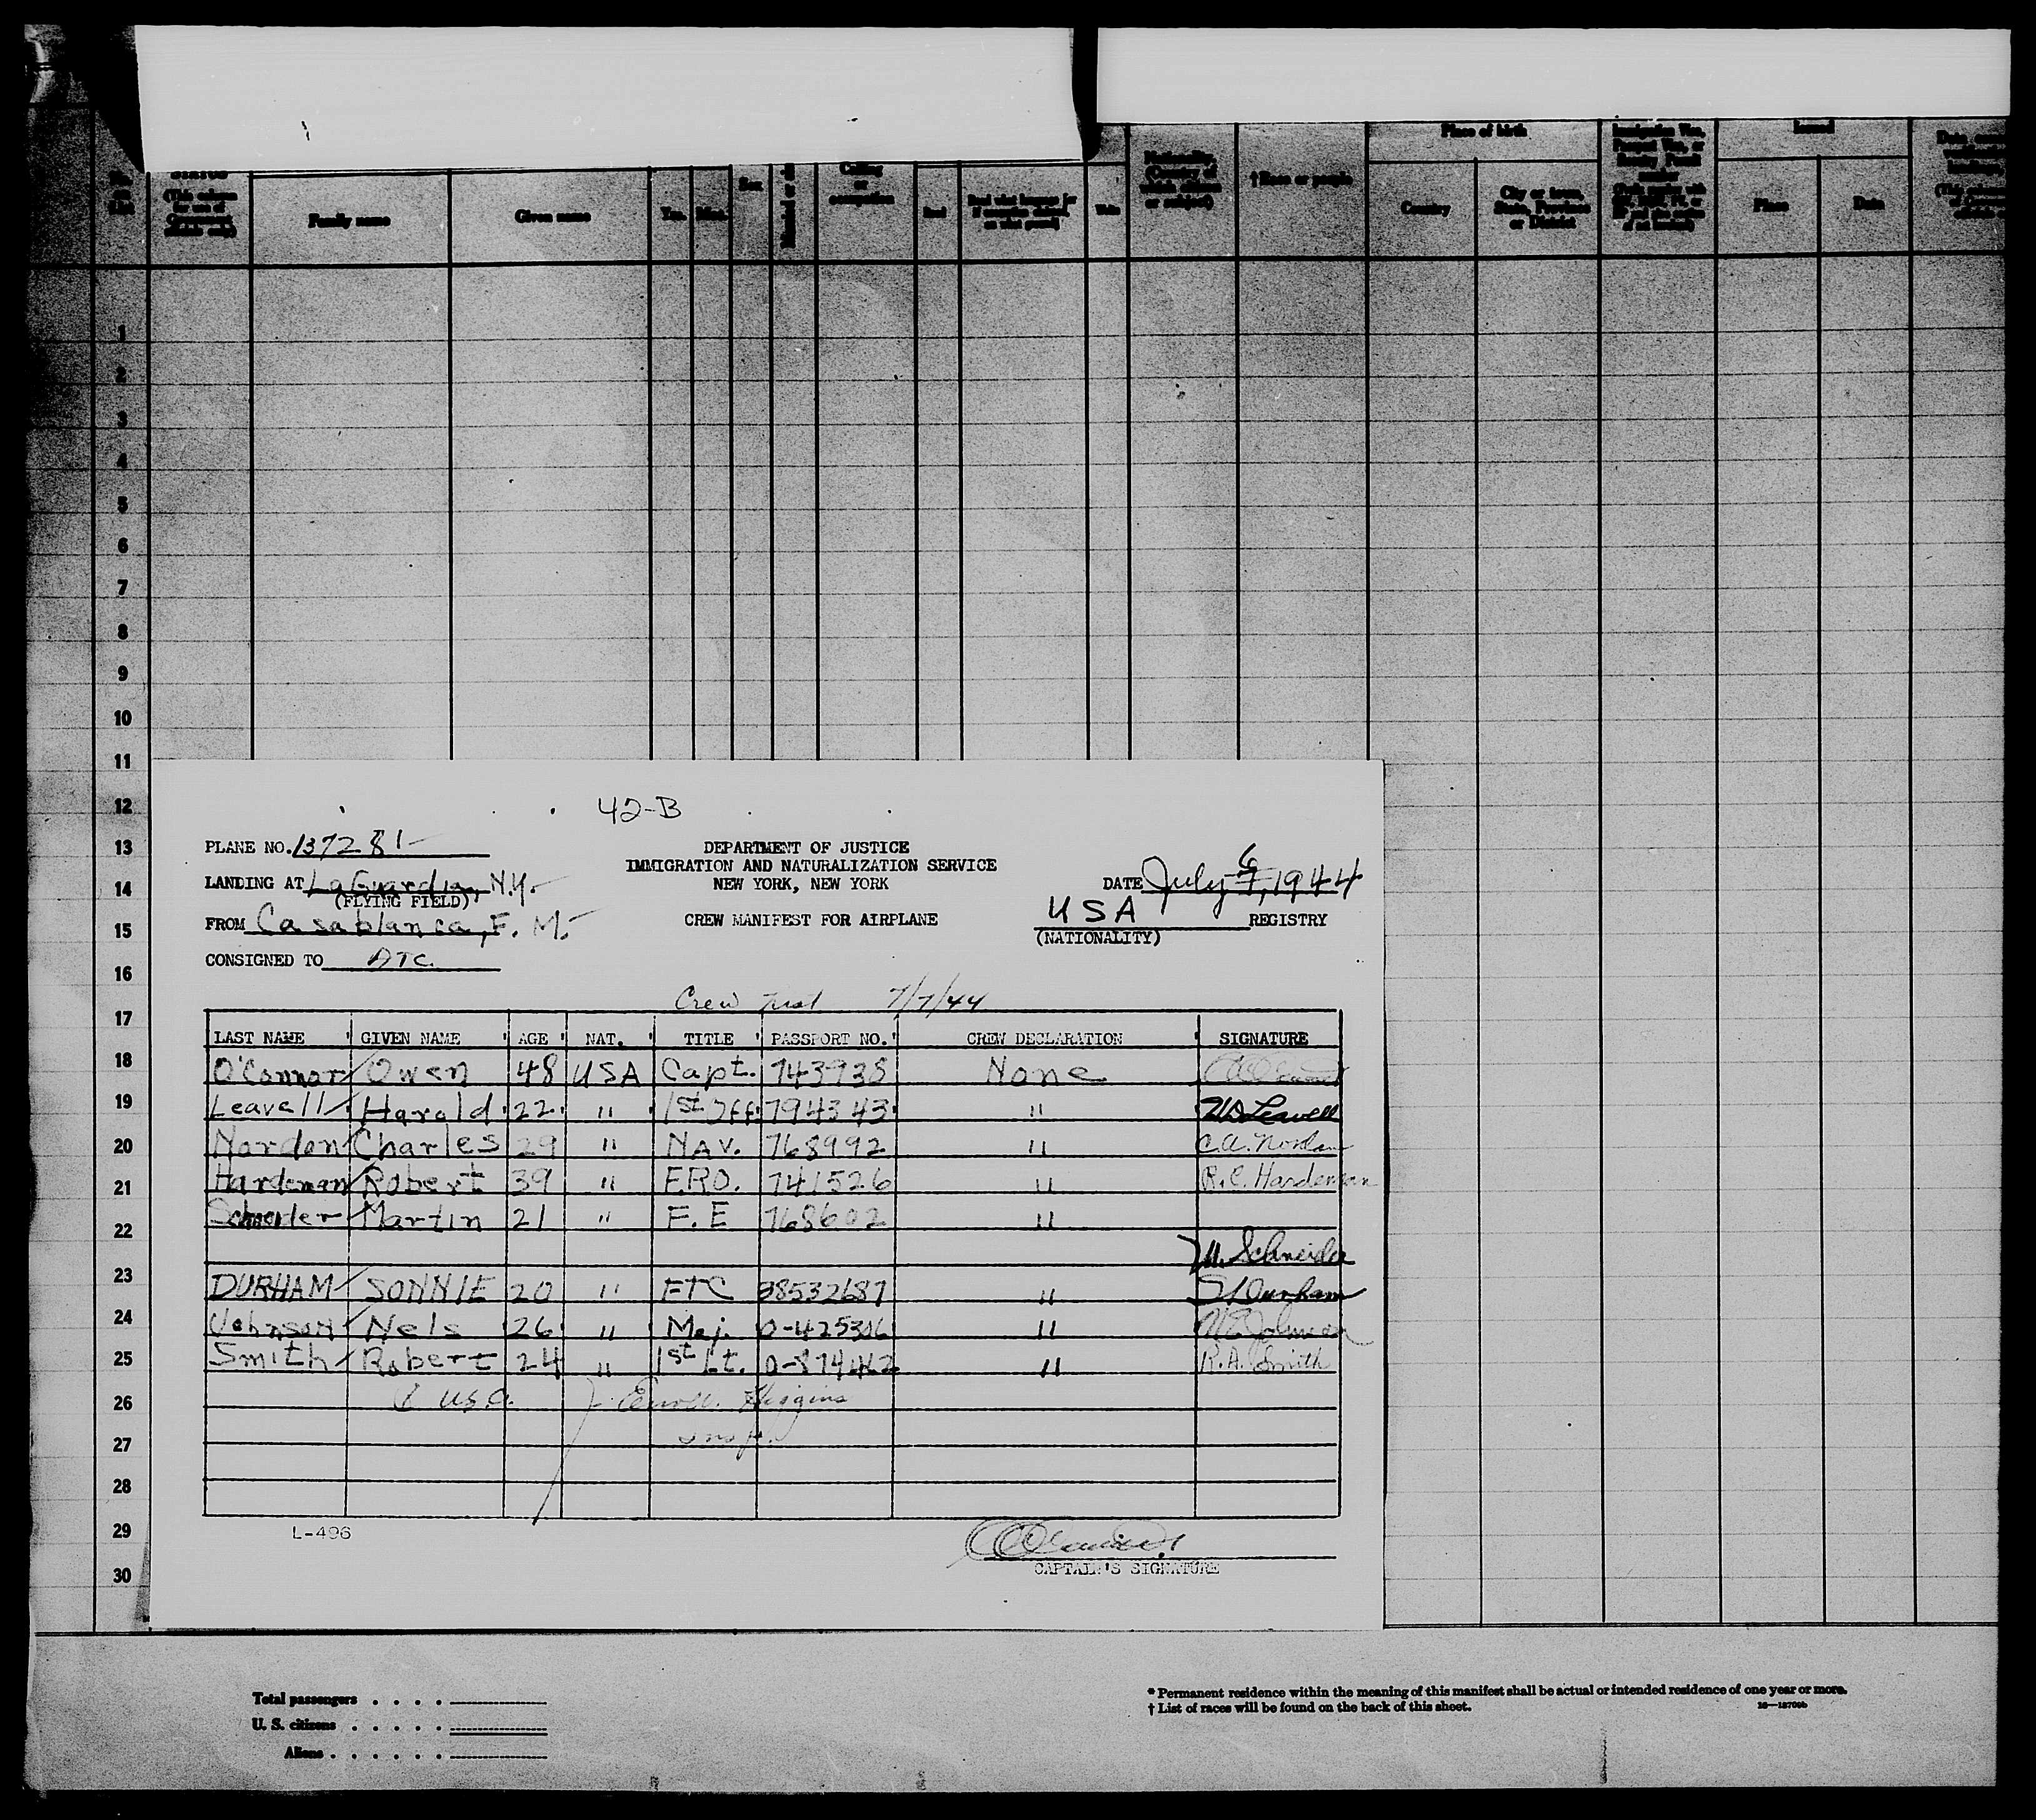 STATUS
(This column for use of Government officials only)
Family name
Given name
Yrs.
Mos.
Sex
Calling or occupation
Read
Read what language [or if exemption claimed, on what ground]
Write
Nationality. (Country of which citizen or subject)
† Race or people
Place of birth
Country
City or town, State, Province or District
Issued
Place
Date
1
2
3
4
5
6
7
8
9
10
11
12
13
14
15
16
17
18
19
20
21
22
23
24
25
26
27
28
29
30
42-B
PLANE NO. 137281
DEPARTMENT OF JUSTICE
IMMIGRATION AND NATURALIZATION SERVICE
NEW YORK, NEW YORK
LANDING AT LaGuardia, N.Y.
(FLYING FIELD)
DATE July 6, 1944
FROM Casablanca, F. M.
CREW MANIFEST FOR AIRPLANE
USA REGISTRY
(NATIONALITY)
CONSIGNED TO ATC.
Crew 7/7/44
LAST NAME GIVEN NAME AGE NAT. TITLE PASSPORT NO. CREW DECLARATION SIGNATURE
O'Connor Owen 48 USA Capt. 743938 None
Leavell Harald 22 " 1st Off. 794343 " H D Leavell
Nordan Charles 29 " NAV. 768992 " C.A. Nordan
Hardeman Robert 39 " F.R.O. 741526 " R.C. Hardeman
Schneider Martin 21 " F.E 768602 "
M. Schneider
DURHAM SONNIE 20 " FTC 38532687 " S Durham
Johnson Nels 26 " Maj. O-425306 " N E Johnson
Smith Robert 24 " 1st Lt. O-874462 " R.A. Smith
8 USC. J. Higgins
Insp.
L-496
CAPTAIN'S SIGNATURE
Total passengers
U. S. citizens
Aliens
* Permanent residence within the meaning of this manifest shall be actual or intended residence of one year or more.
† List of races will be found on the back of this sheet.